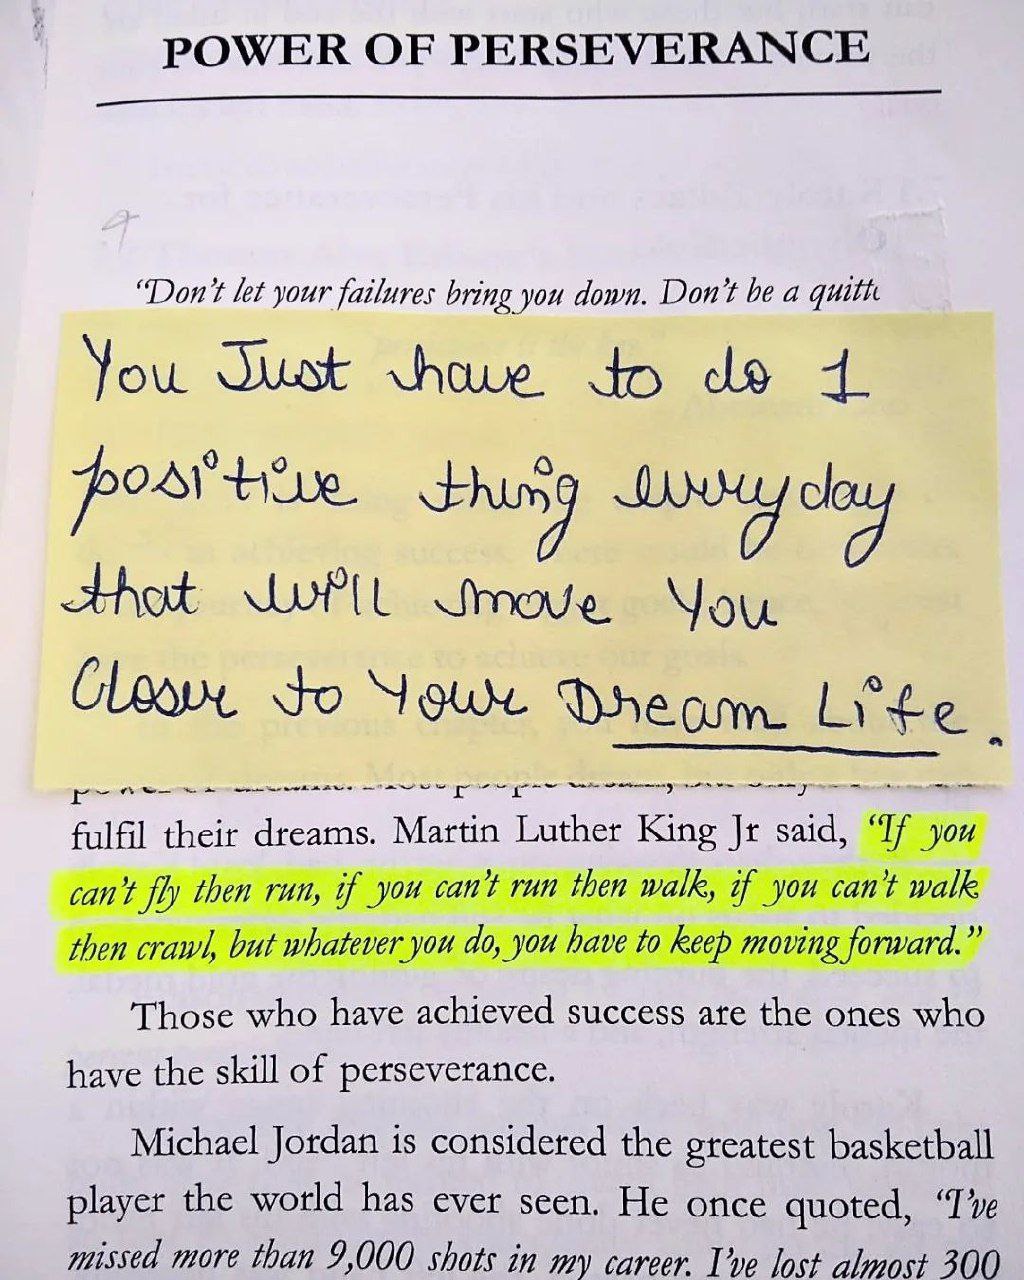 POWER OF PERSEVERANCE
“Don’t let your failures bring you down. Don’t be a
You Just have to do 1
positive thing everyday
that will move You
Closer to Your Dream Life.
fulfil their dreams. Martin Luther King Jr said, “If you
can’t fly then run, if you can’t run then walk, if you can’t walk
then crawl, but whatever you do, you have to keep moving forward.”
Those who have achieved success are the ones who
have the skill of perseverance.
Michael Jordan is considered the greatest basketball
player the world has ever seen. He once quoted, “I’ve
missed more than 9,000 shots in my career. I’ve lost almost 300